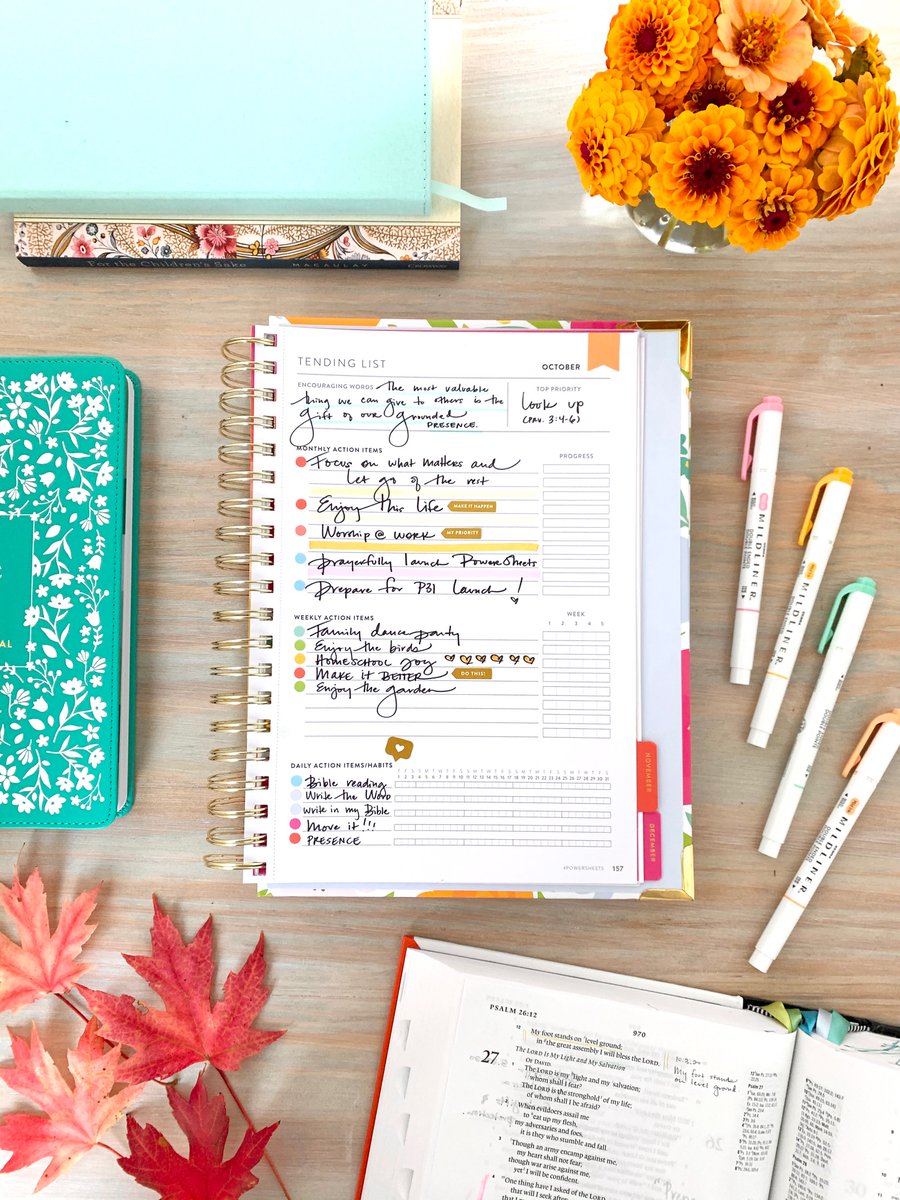 For the Children's Sake MACAULAY CROSSWAY
TENDING LIST
OCTOBER
ENCOURAGING WORDS The most valuable
thing we can give to others is the
gift of our grounded
PRESENCE.
TOP PRIORITY
look up
(PRV. 3:4-6)
MONTHLY ACTION ITEMS
PROGRESS
Focus on what matters and
let go of the rest
Enjoy this life MAKE IT HAPPEN
Worship @ work MY PRIORITY
prayerfully launch PowerSheets
Prepare for P31 launch!
WEEKLY ACTION ITEMS
WEEK
1 2 3 4 5
Family dance party
Enjoy the birds
HOMESCHOOL JOY
MAKE IT BETTER DO THIS!
Enjoy the garden
DAILY ACTION ITEMS/HABITS
T F S S M T W T F S S M T W T F S S M T W T F S S M T W T F S
1 2 3 4 5 6 7 8 9 10 11 12 13 14 15 16 17 18 19 20 21 22 23 24 25 26 27 28 29 30 31
Bible reading
Write the Word
write in my Bible
Move it!!!
PRESENCE
#POWERSHEETS 157
NOVEMBER
DECEMBER
MILDLINER
MILDLINER
MILDLINER
MILDLINER
PSALM 26:12
970
12 My foot stands on level ground;
in the great assembly I will bless the LORD.
My foot stands
on level ground
The LORD Is My Light and My Salvation
27 OF DAVID.
The LORD is my light and my salvation;
whom shall I fear?
The LORD is the stronghold of my life;
of whom shall I be afraid?
2 When evildoers assail me
to eat up my flesh,
my adversaries and foes,
it is they who stumble and fall.
3 Though an army encamp against me,
my heart shall not fear;
though war arise against me,
yet I will be confident.
4 One thing have I asked of the LORD,
that will I seek after: